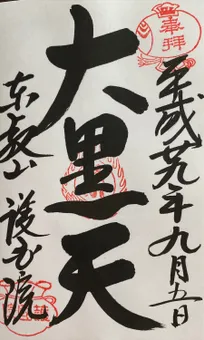 奉拝
平成廿九年九月五日
大黒天
东叡山 護国院